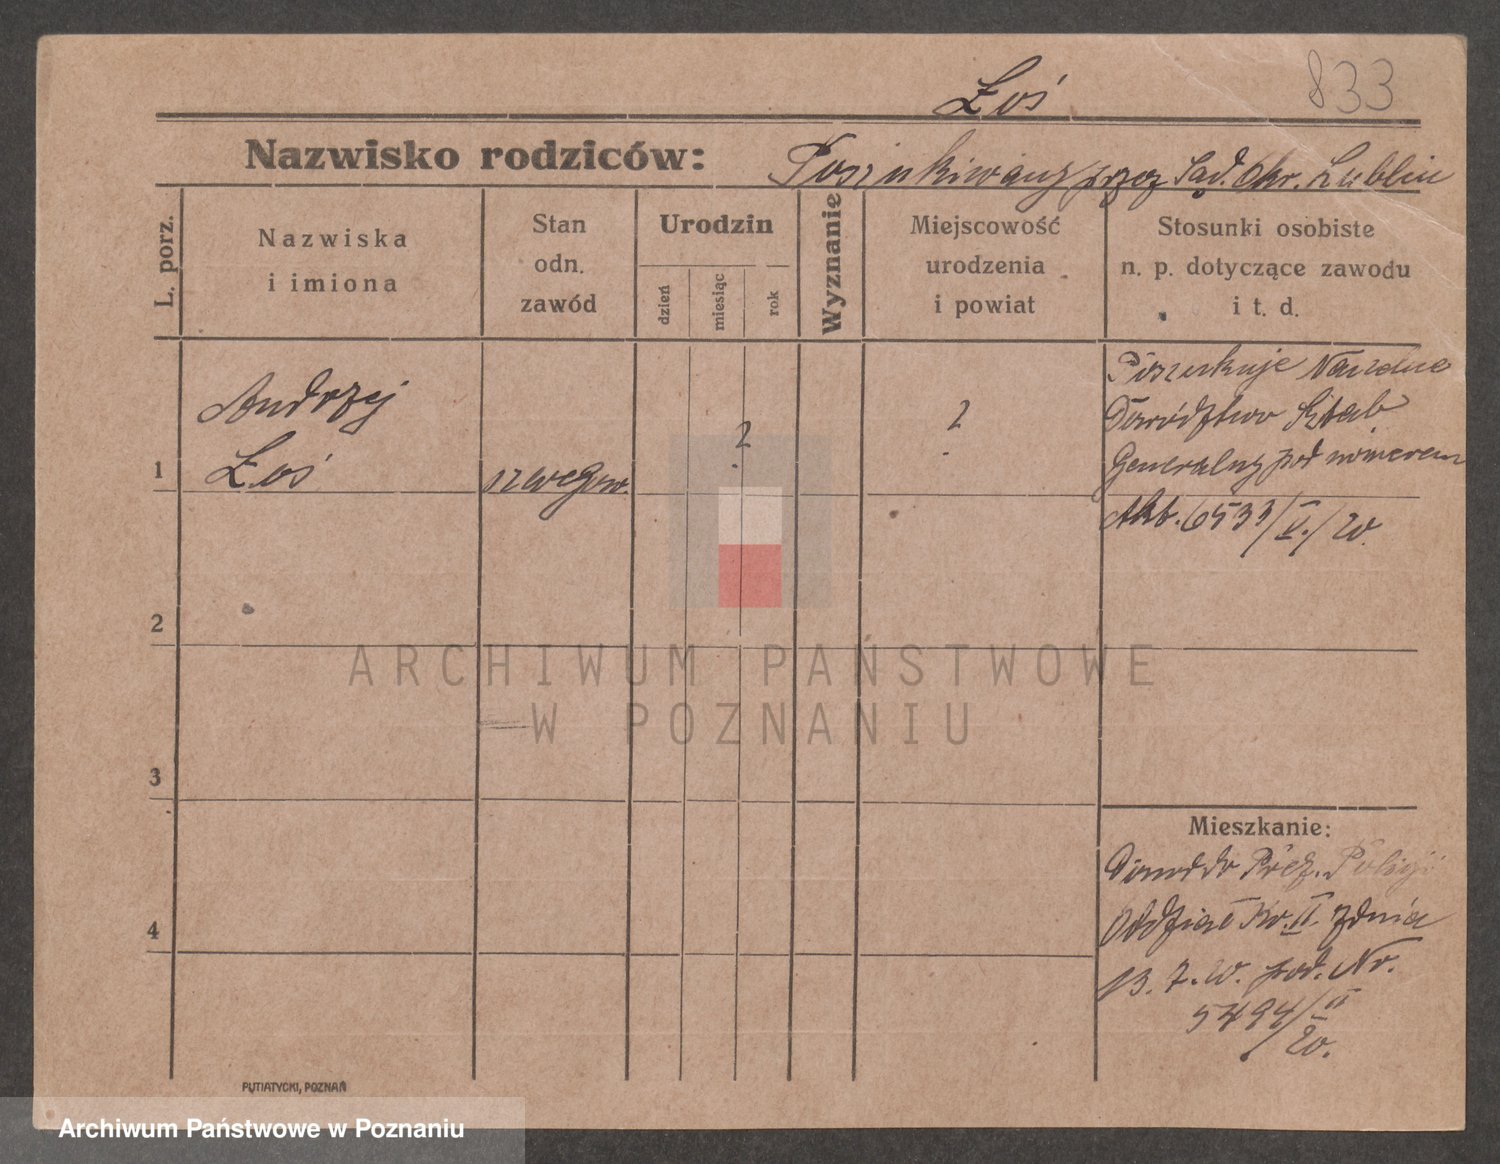 Łoś
833
Nazwisko rodziców: Poszukiwany przez Sąd. Okr. Lublin
L. porz.
Nazwiska
i imiona
Stan
odn.
zawód
Urodzin
dzień
miesiąc
rok
Wyznanie
Miejscowość
urodzenia
i powiat
Stosunki osobiste
n. p. dotyczące zawodu
i t. d.
1
Andrzej
Łoś
szeregow.
?
?
Poszukuje Naczelne
Dowództwo Sztab
Generalny pod numerem
6533/V./20.
2
3
4
Mieszkanie:
Prez. Policji
Oddział Kr. II. z dnia
13. 7. 20. pod. Nr.
5494/II
20.
PUTIATYCKI, POZNAŃ
ARCHIWUM PAŃSTWOWE
W POZNANIU
Archiwum Państwowe w Poznaniu